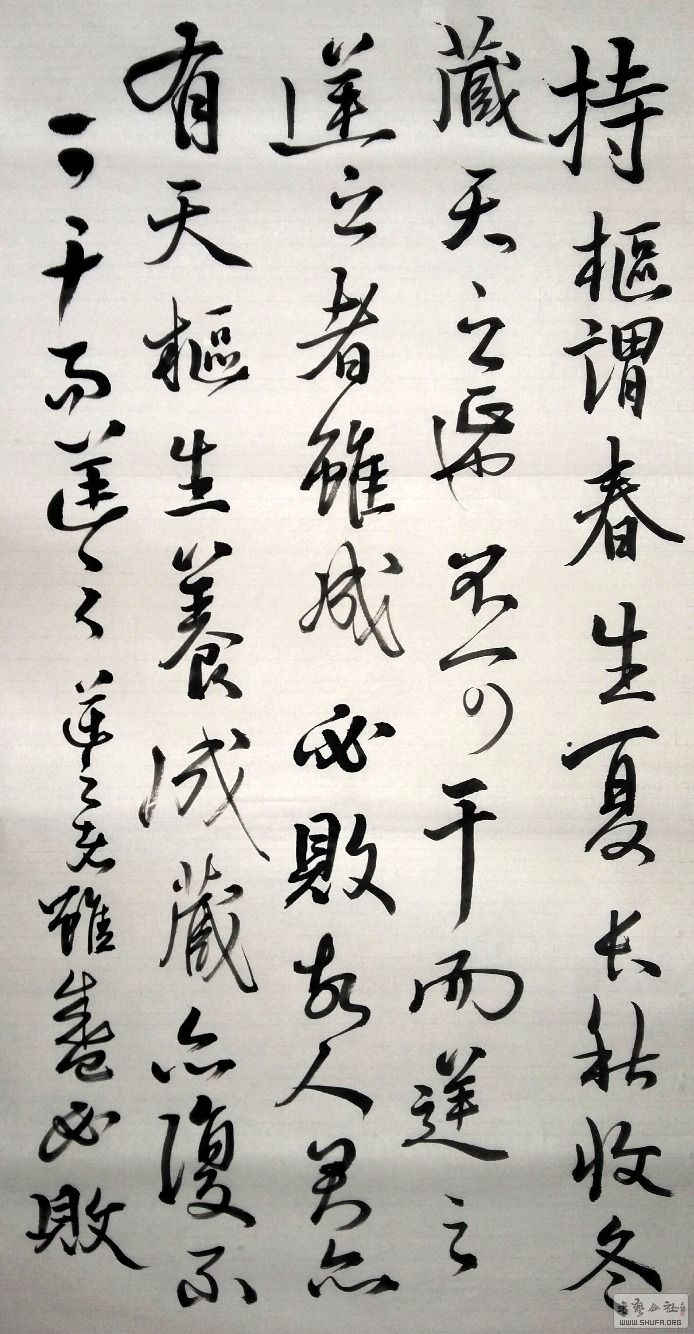 持樞謂春生夏长秋收冬
藏天之正也不可干而逆之
逆之者雖成必敗故人君亦
有天樞生養成藏亦復不
可干而逆之逆之者雖盛必敗
藝公社
WWW.SHUFA.ORG